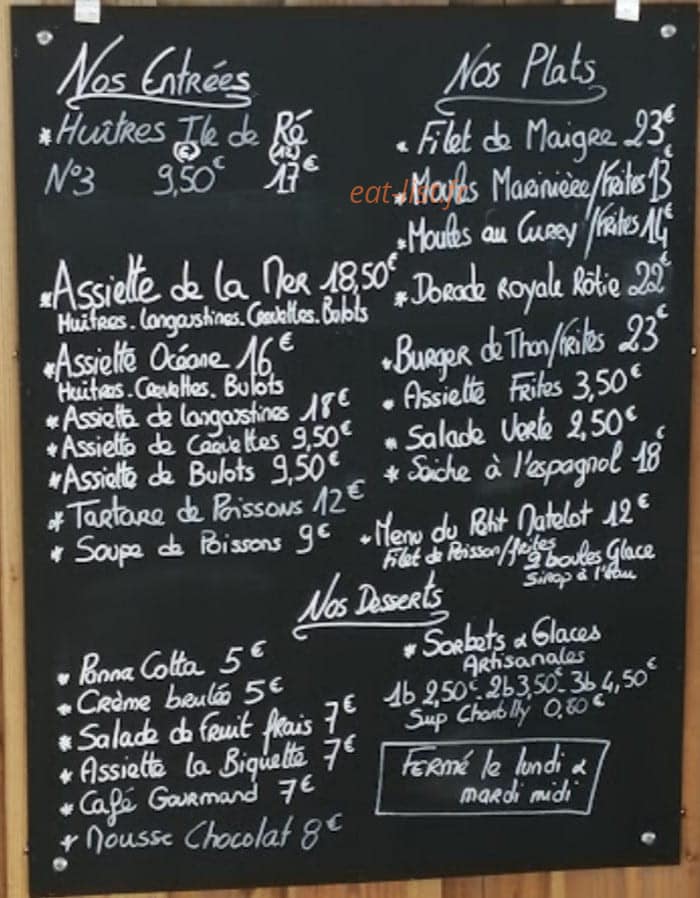 Nos Entrées
* Huîtres Ile de Ré
(6) (12)
N°3 9,50€ 17€
* Assiette de la Mer 18,50€
Huîtres. Langoustines. Crevettes. Bulots
* Assiette Océane 16€
Huîtres. Crevettes. Bulots
* Assiette de langoustines 18€
* Assiette de Crevettes 9,50€
* Assiette de Bulots 9,50€
* Tartare de Poissons 12€
* Soupe de Poissons 9€
Nos Plats
* Filet de Maigre 23€
* Moules Marinière/Frites 13€
* Moules au Curry/Frites 14€
* Dorade Royale Rôtie 22€
* Burger de Thon/Frites 23€
* Assiette Frites 3,50€
* Salade Verte 2,50€
* Seiche à l'espagnol 18€
* Menu du Petit Matelot 12€
Filet de Poisson/frites
2 boules Glace
Sirop à l'eau
Nos Desserts
* Panna Cotta 5€
* Crème brulée 5€
* Salade de Fruit frais 7€
* Assiette La Biquette 7€
* Café Gourmand 7€
* Mousse Chocolat 8€
* Sorbets & Glaces
Artisanales
1b 2,50€ - 2b 3,50€ - 3b 4,50€
Sup Chantilly 0,80€
Fermé le lundi &
mardi midi